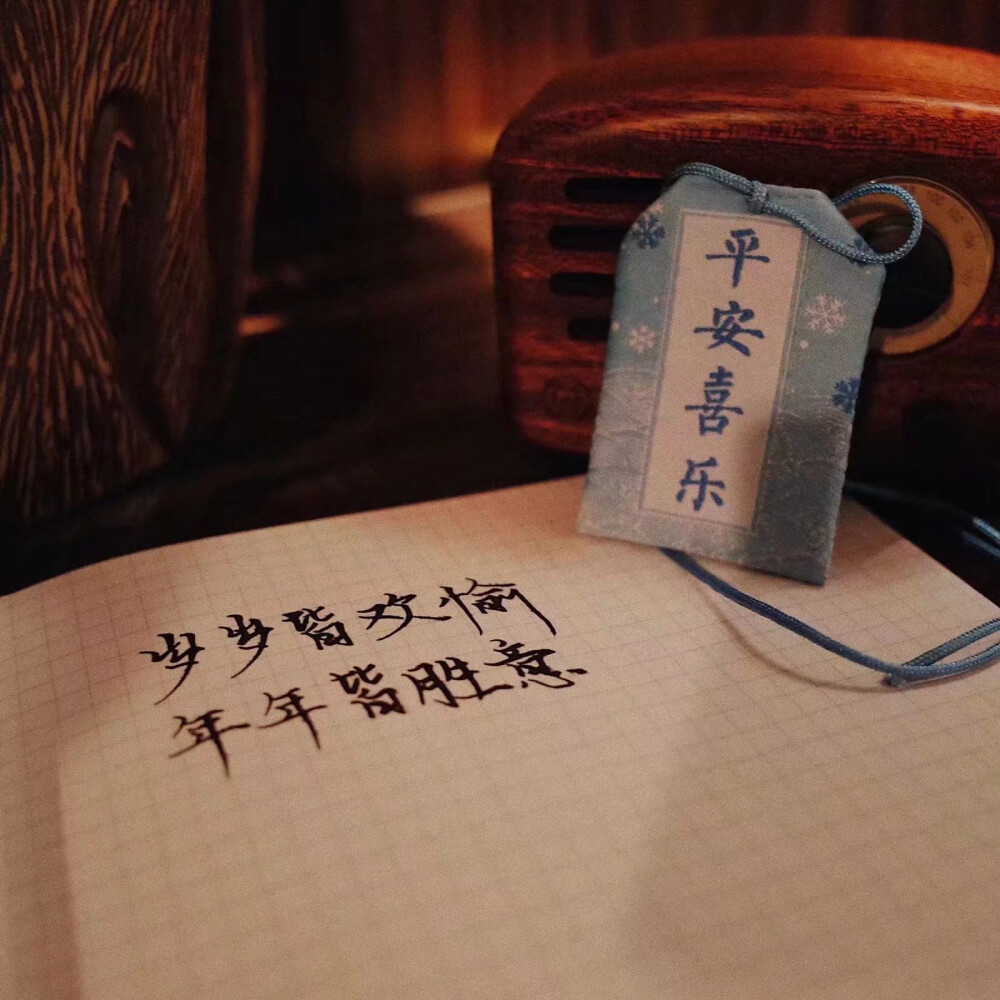 平安喜乐
岁岁皆欢愉
年年皆胜意